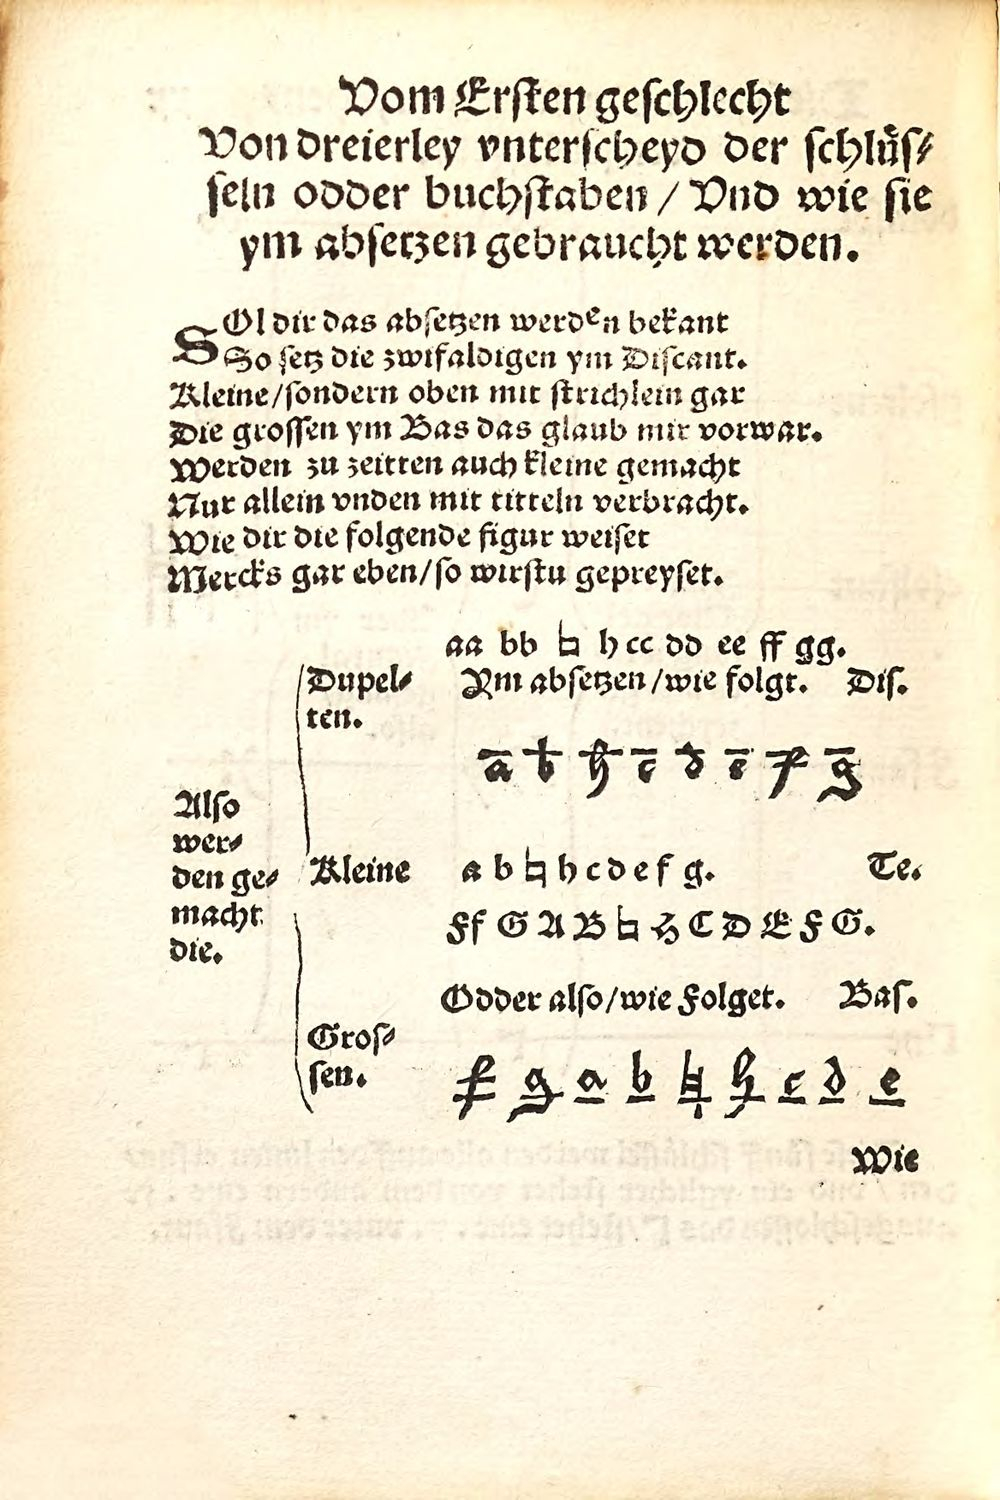 Vom Ersten geschlecht
Von dreierley vnterscheyd der schlüs⸗
seln odder buchstaben / Vnd wie sie
ym absetzen gebraucht werden.
SOl dir das absetzen werden bekant
So setz die zwifaldigen ym Discant.
Kleine/sondern oben mit strichlein gar
Die grossen ym Bas das glaub mir vorwar.
Werden zu zeitten auch kleine gemacht
Nur allein vnden mit titteln verbracht.
Wie dir die folgende figur weiset
Mercks gar eben/so wirstu gepreyset.
aa bb ♮ h cc dd ee ff gg.
Dupel⸗ Ym absetzen/wie folgt. Dis.
ten.
a̅ b̅ h̅ c̅ d̅ e̅ f̅ g̅
Also
wer⸗
den ge⸗
macht
die.
Kleine a b ♮ h c d e f g. Te.
Ff G A B ♮ H C D E F G.
Odder also/wie Folget. Bas.
Gros⸗
sen.
f̲ g̲ a̲ b̲ ♮̲ h̲ c̲ d̲ e̲
Wie